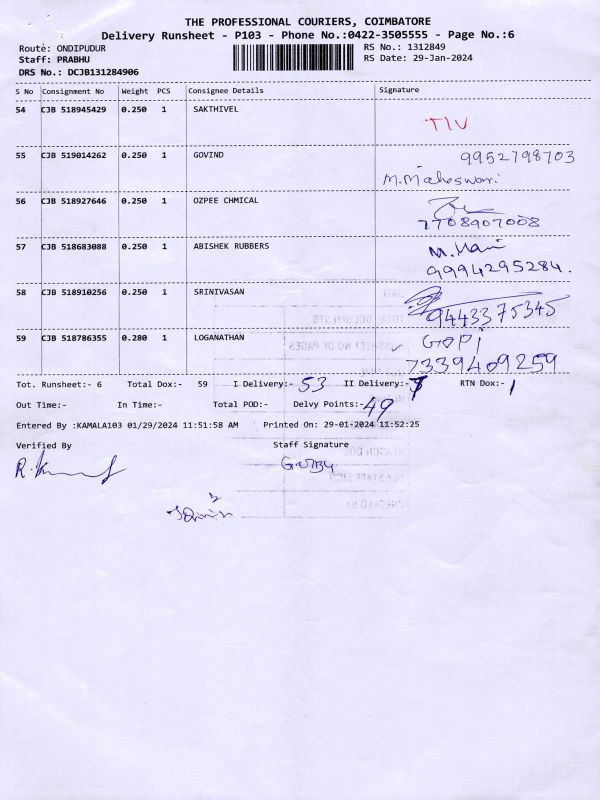 THE PROFESSIONAL COURIERS, COIMBATORE
Delivery Runsheet - P103 - Phone No.:0422-3505555 - Page No.:6
Route: ONDIPUDUR RS No.: 1312849
Staff: PRABHU RS Date: 29-Jan-2024
DRS No.: DCJB131284906
S No Consignment No Weight PCS Consignee Details Signature
54 CJB 518945429 0.250 1 SAKTHIVEL
TIV
55 CJB 519014262 0.250 1 GOVIND 9952798703
M.Maheswari
56 CJB 518927646 0.250 1 OZPEE CHMICAL
7708907008
57 CJB 518683088 0.250 1 ABISHEK RUBBERS M.Mani
9994295284.
58 CJB 518910256 0.250 1 SRINIVASAN
9443375345
59 CJB 518786355 0.280 1 LOGANATHAN GOPI
7339409259
Tot. Runsheet:- 6 Total Dox:- 59 I Delivery:- 53 II Delivery:- RTN Dox:- 1
Out Time:- In Time:- Total POD:- Delvy Points:- 49
Entered By :KAMALA103 01/29/2024 11:51:58 AM Printed On: 29-01-2024 11:52:25
Verified By Staff Signature